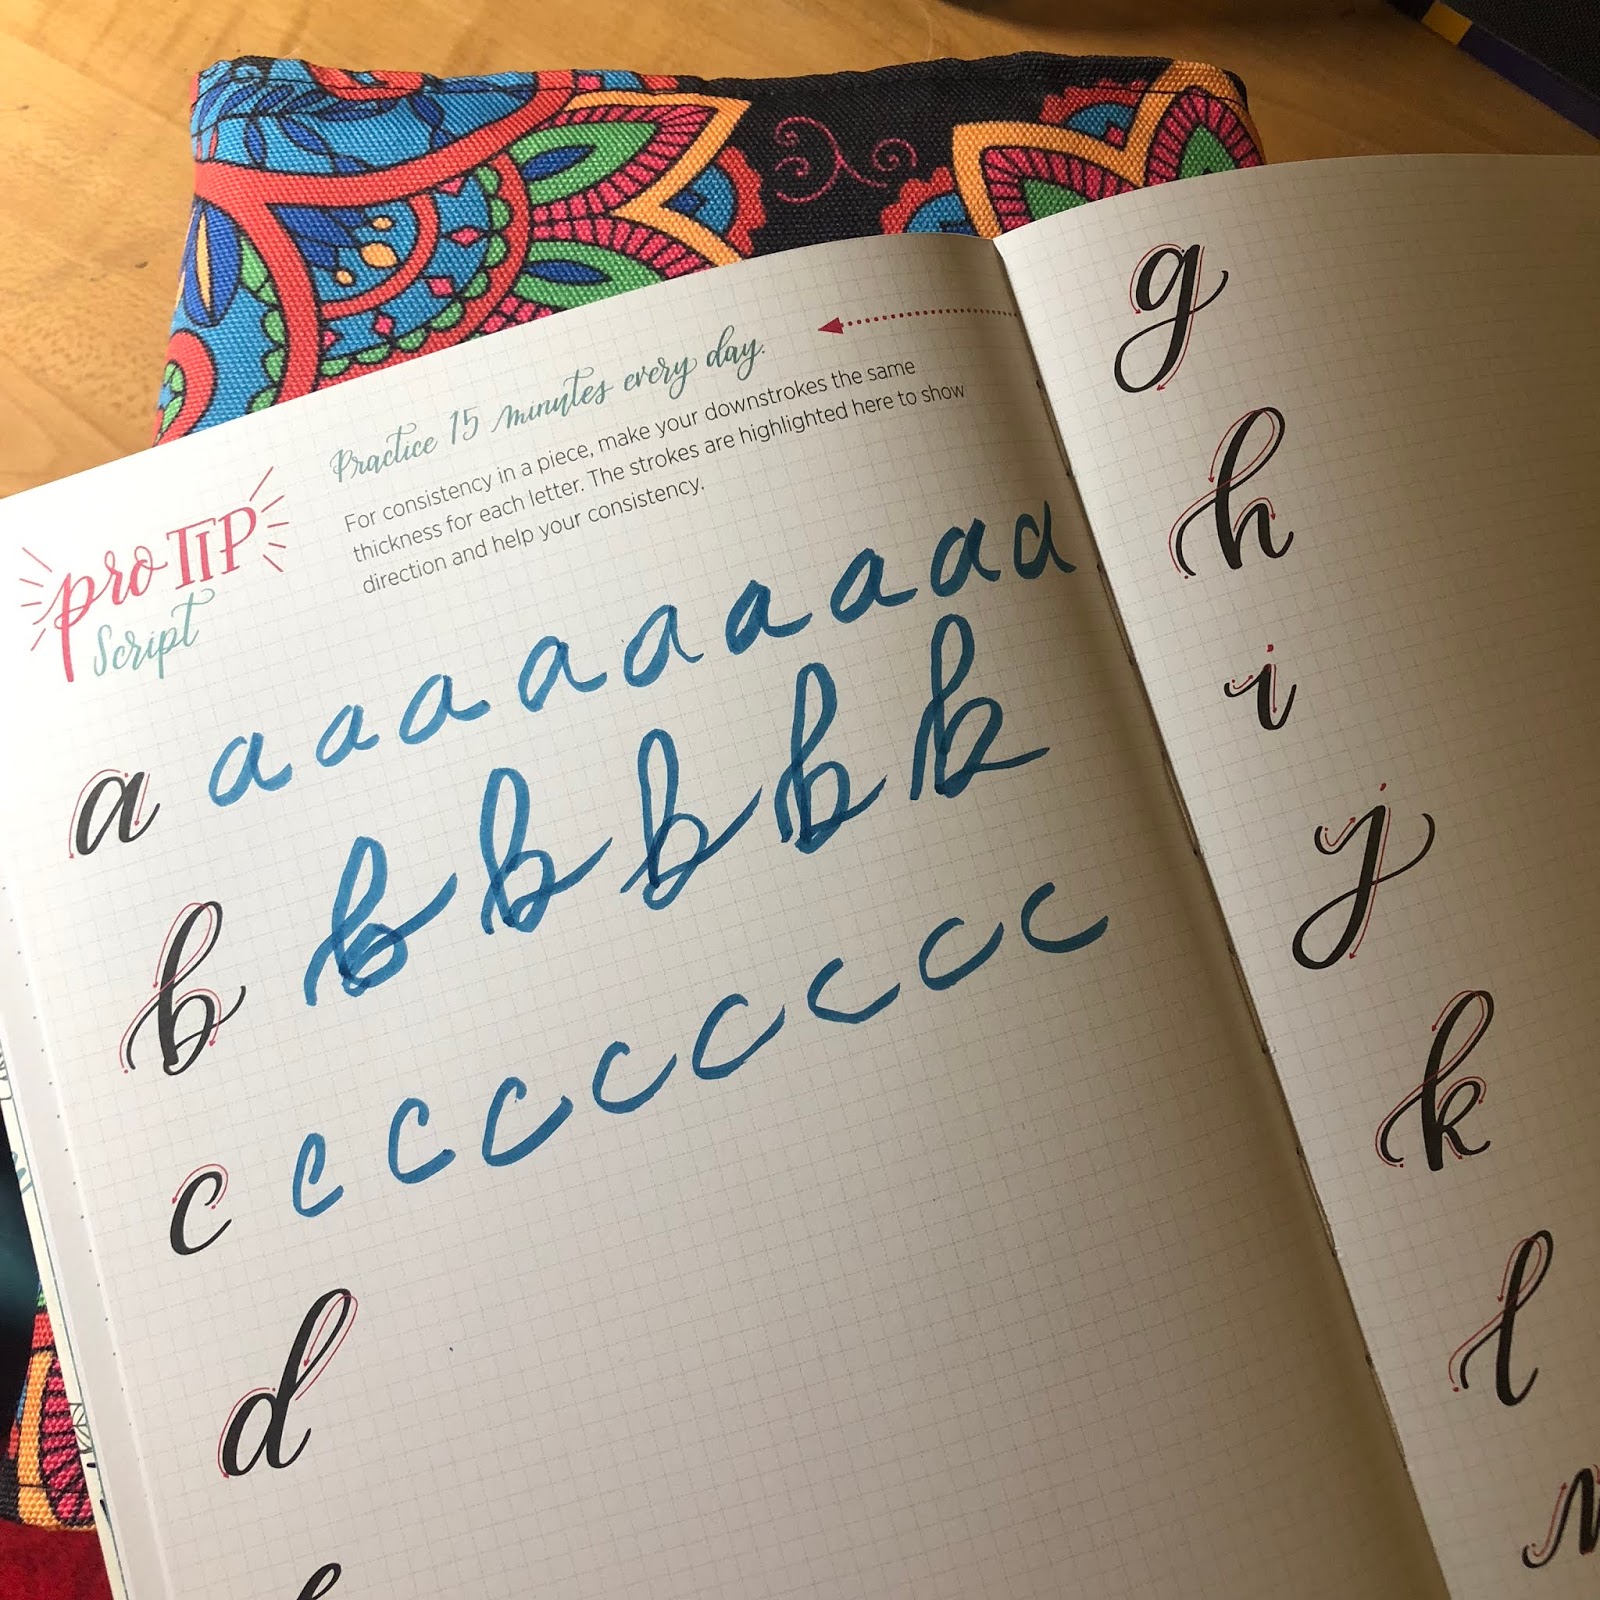 pro TIP
Script
Practice 15 minutes every day.
For consistency in a piece, make your downstrokes the same
thickness for each letter. The strokes are highlighted here to show
direction and help your consistency.
a a a a a a a a a a
b b b b b b
c c c c c c c c c
d
g
h
i
j
k
l